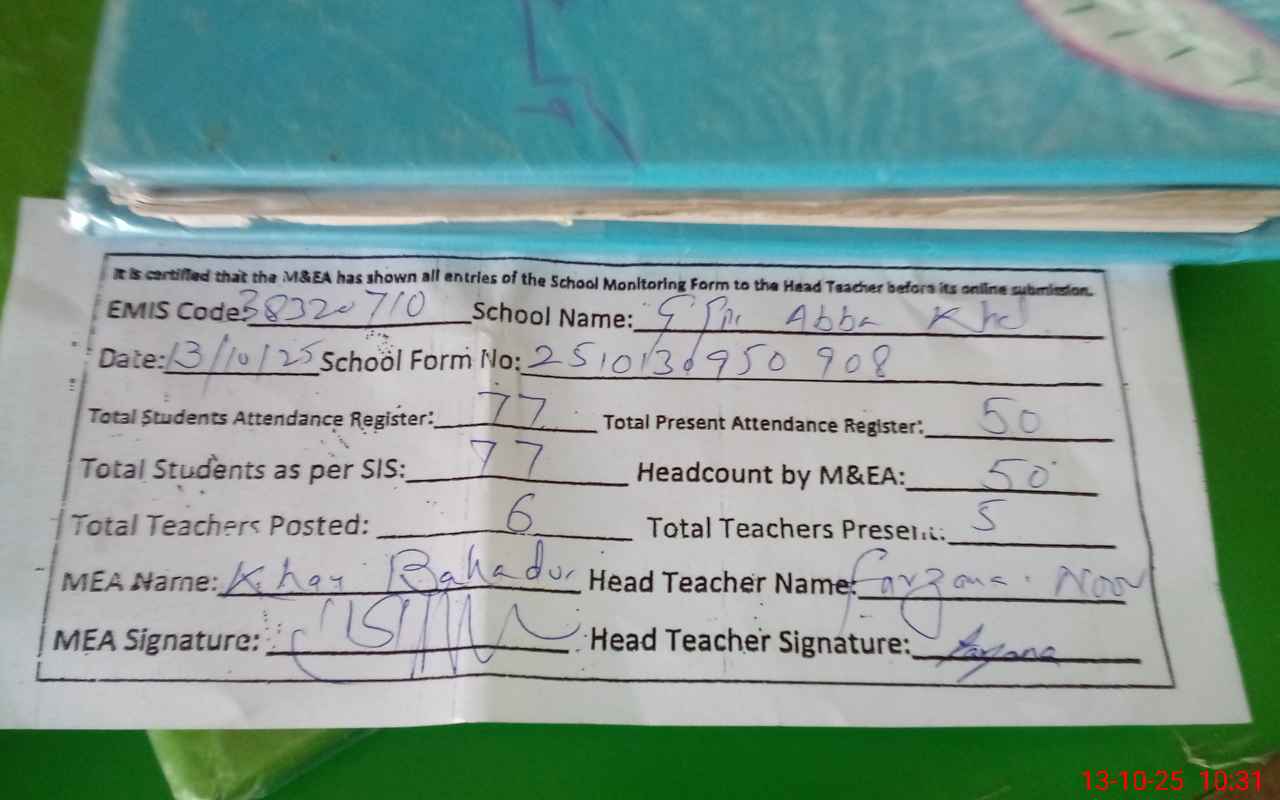 It is certified that the M&EA has shown all entries of the School Monitoring Form to the Head Teacher before its online submission.
EMIS Code: 38320710 School Name: Abba Khel
Date: 13/10/25 School Form No: 2510130950908
Total Students Attendance Register: 77 Total Present Attendance Register: 50
Total Students as per SIS: 77 Headcount by M&EA: 50
Total Teachers Posted: 6 Total Teachers Present: 5
MEA Name: Khan Bahadur Head Teacher Name: Farzana Noor
MEA Signature: Head Teacher Signature: Farzana
13-10-25 10:31